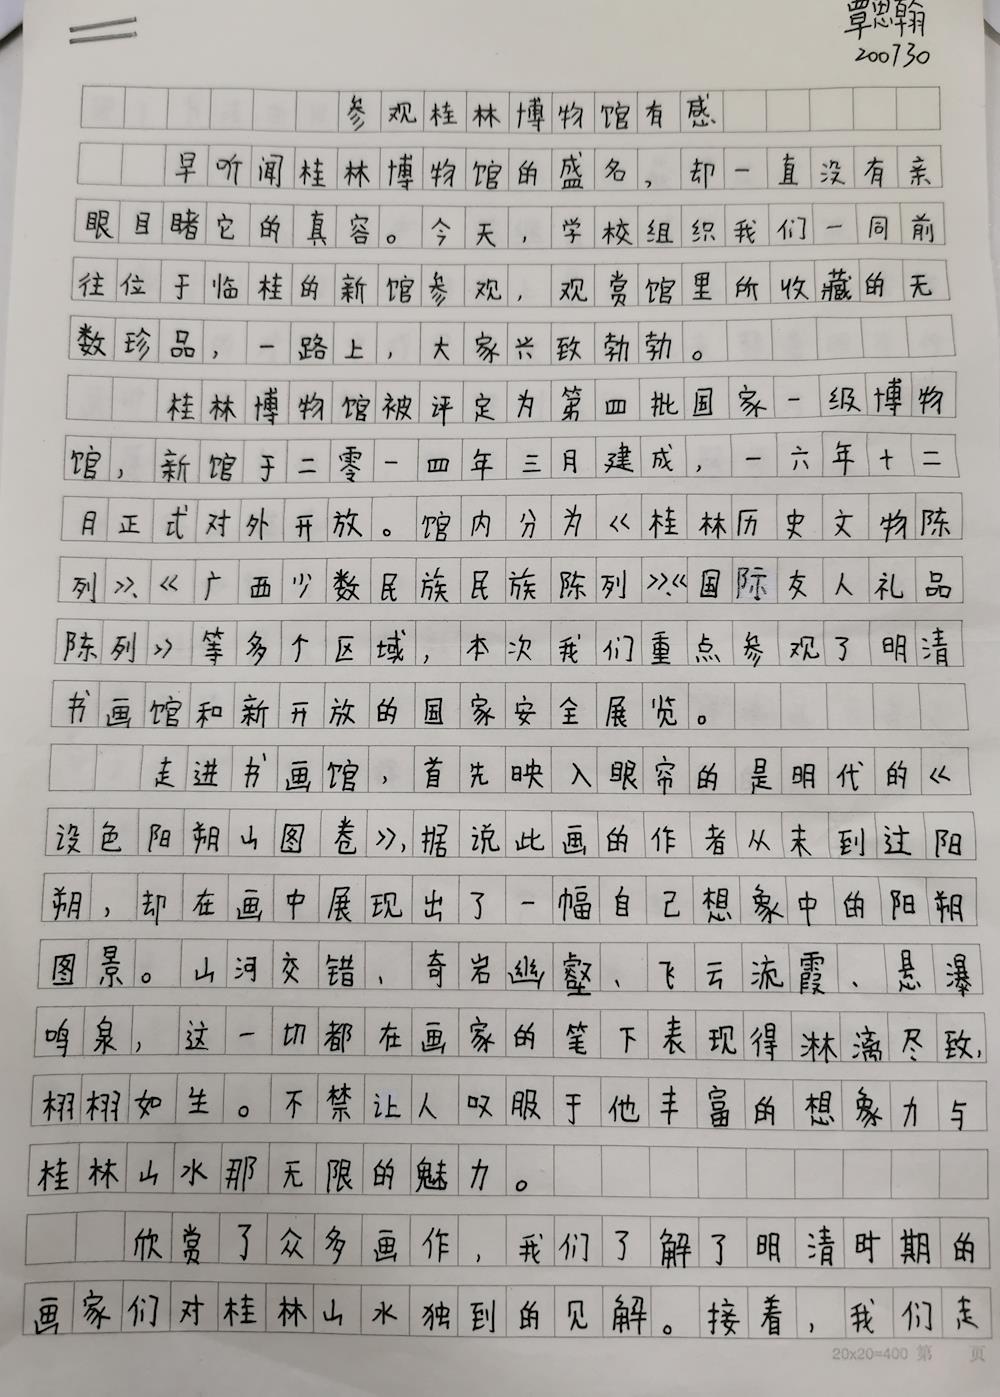 覃思翰
200730
参观桂林博物馆有感
早听闻桂林博物馆的盛名，却一直没有亲
眼目睹它的真容。今天，学校组织我们一同前
往位于临桂的新馆参观，观赏馆里所收藏的无
数珍品，一路上，大家兴致勃勃。
桂林博物馆被评定为第四批国家一级博物
馆，新馆于二零一四年三月建成，一六年十二
月正式对外开放。馆内分为《桂林历史文物陈
列》、《广西少数民族民族陈列》、《国际友人礼品
陈列》等多个区域，本次我们重点参观了明清
书画馆和新开放的国家安全展览。
走进书画馆，首先映入眼帘的是明代的《
设色阳朔山图卷》，据说此画的作者从未到过阳
朔，却在画中展现出了一幅自己想象中的阳朔
图景。山河交错、奇岩幽壑、飞云流霞、悬瀑
鸣泉，这一切都在画家的笔下表现得淋漓尽致，
栩栩如生。不禁让人叹服于他丰富的想象力与
桂林山水那无限的魅力。
欣赏了众多画作，我们了解了明清时期的
画家们对桂林山水独到的见解。接着，我们走
20x20=400 第 页